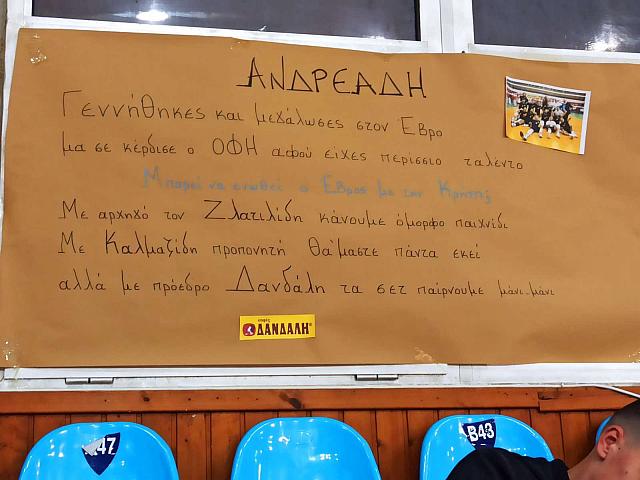 ΑΝΔΡΕΑΔΗ
Γεννήθηκες και μεγάλωσες στον Έβρο
μα σε κέρδισε ο ΟΦΗ αφού είχες περίσσιο ταλέντο
Μπορεί να ενωθεί ο Έβρος με την Κρήτη;
Με αρχηγό τον Ζλατιλίδη κάνουμε όμορφο παιχνίδι
Με Καλμαζίδη προπονητή θα'μαστε πάντα εκεί
αλλά με πρόεδρο Δανδάλη τα σετ παίρνουμε μάνι-μάνι
ΔΑΝΔΑΛΗ
47
B43